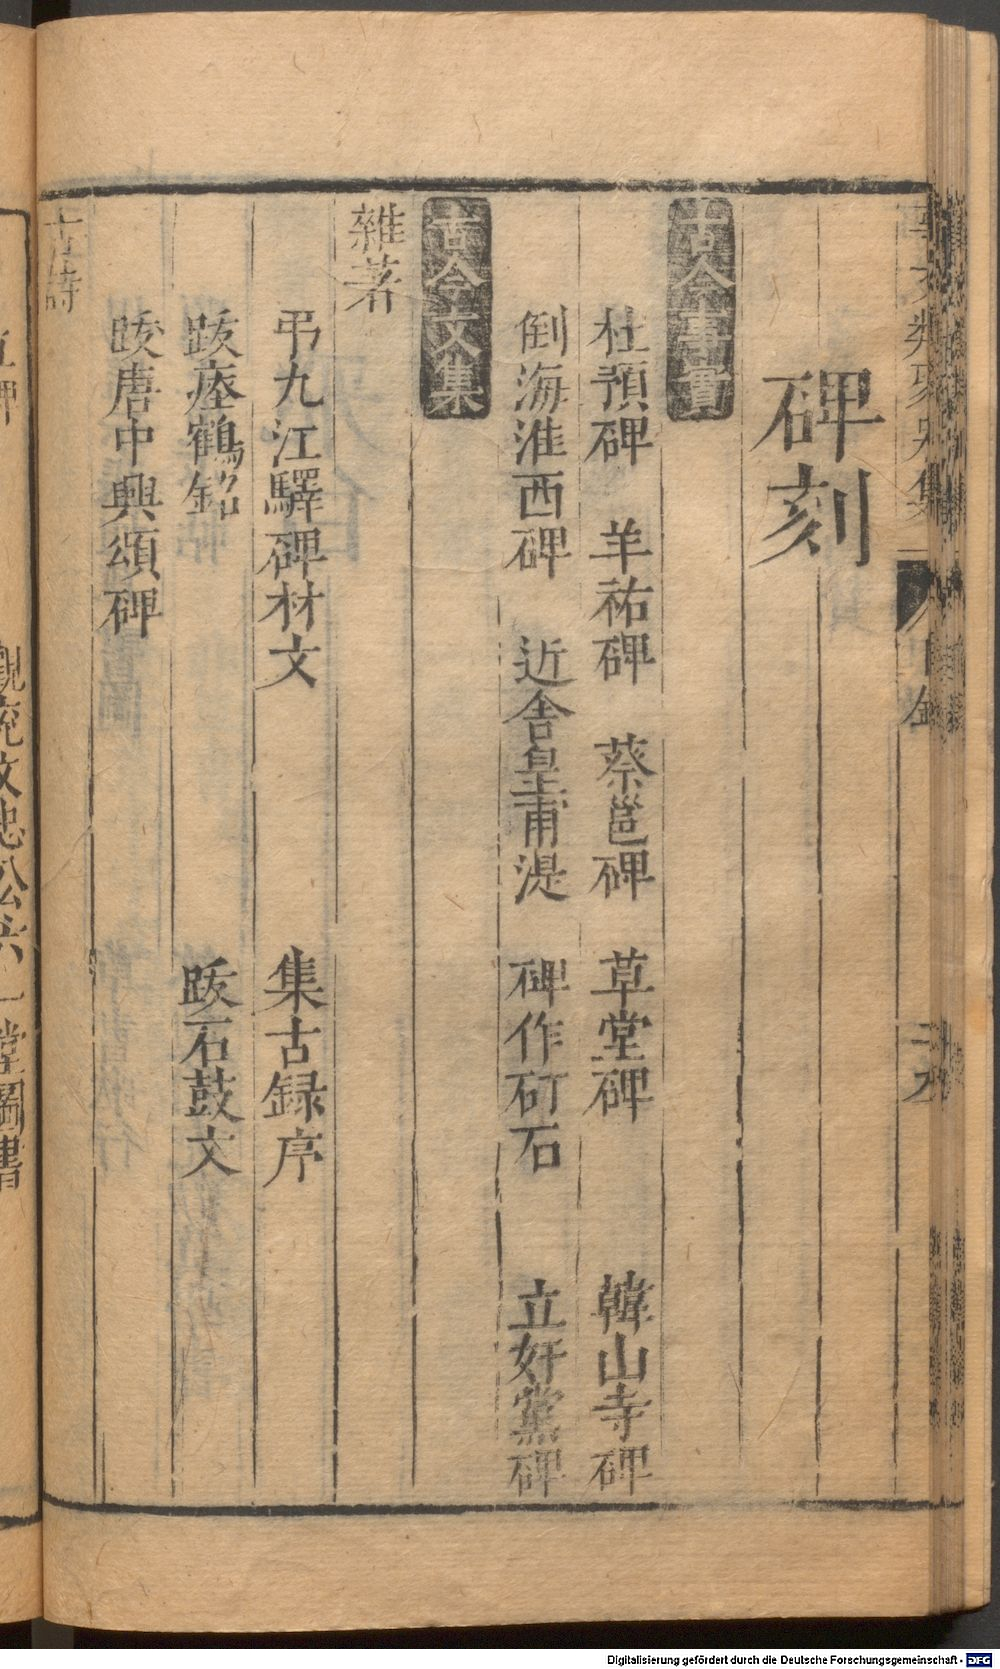 碑刻
古今事實
杜預碑 羊祐碑 蔡邕碑 草堂碑 韓山寺碑
倒海淮西碑 近舍皇甫湜 碑作矴石 立奸黨碑
古今文集
雜著
弔九江驛碑材文 集古録序
跋瘞鶴銘 跋石鼓文
跋唐中興頌碑
古詩
觀兗文忠公六一堂圖書
Digitalisierung gefördert durch die Deutsche Forschungsgemeinschaft - DFG